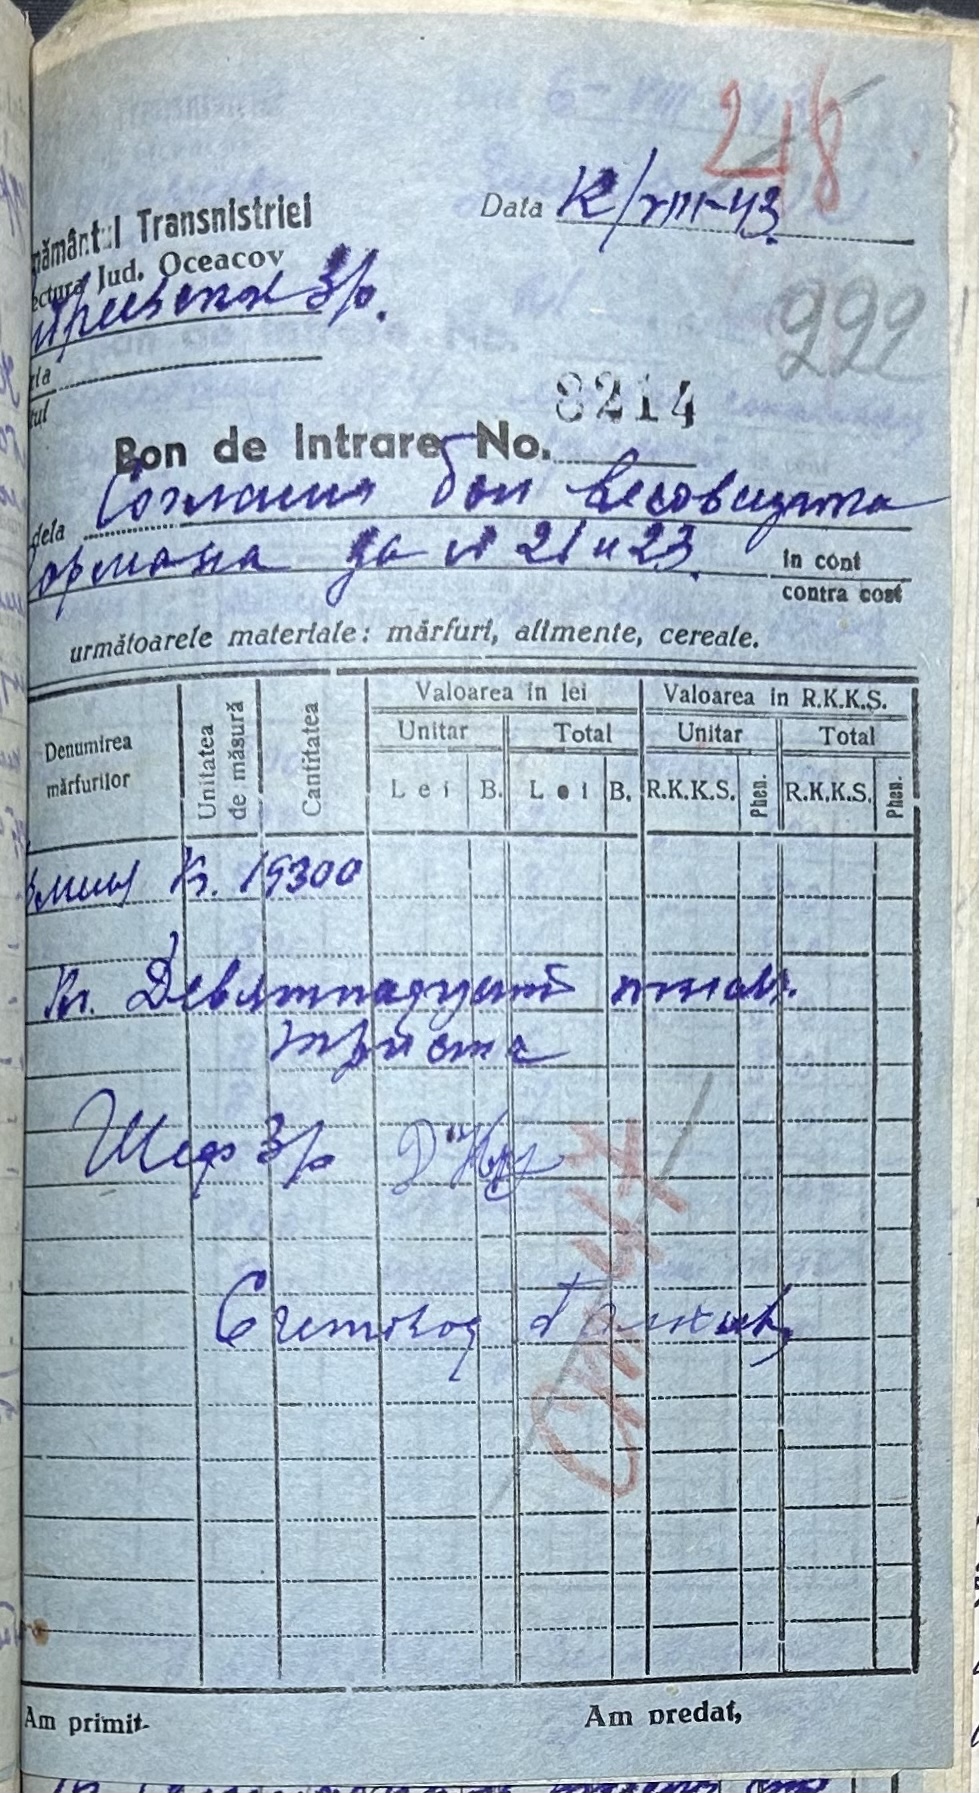 218
Data 12/VIII-43.
nământul Transnistriei
ectura Jud. Oceacov
Зр.
222
rla
tul
8214
Bon de intrare No.
dela Согласно бон весовщика
до № 21 и 23. in cont
contra cost
următoarele materiale: mărfuri, alimente, cereale.
Denumirea mărfurilor
Unitatea de măsură
Cantitatea
Valoarea în lei
Valoarea in R.K.K.S.
Unitar Total Unitar Total
Lei B. Lei B. R.K.K.S. Phen. R.K.K.S. Phen.
К. 19300
Кг. Девятнадцать тысяч.
триста
Шеф Зр
Счетовод
Am primit
Am predat,